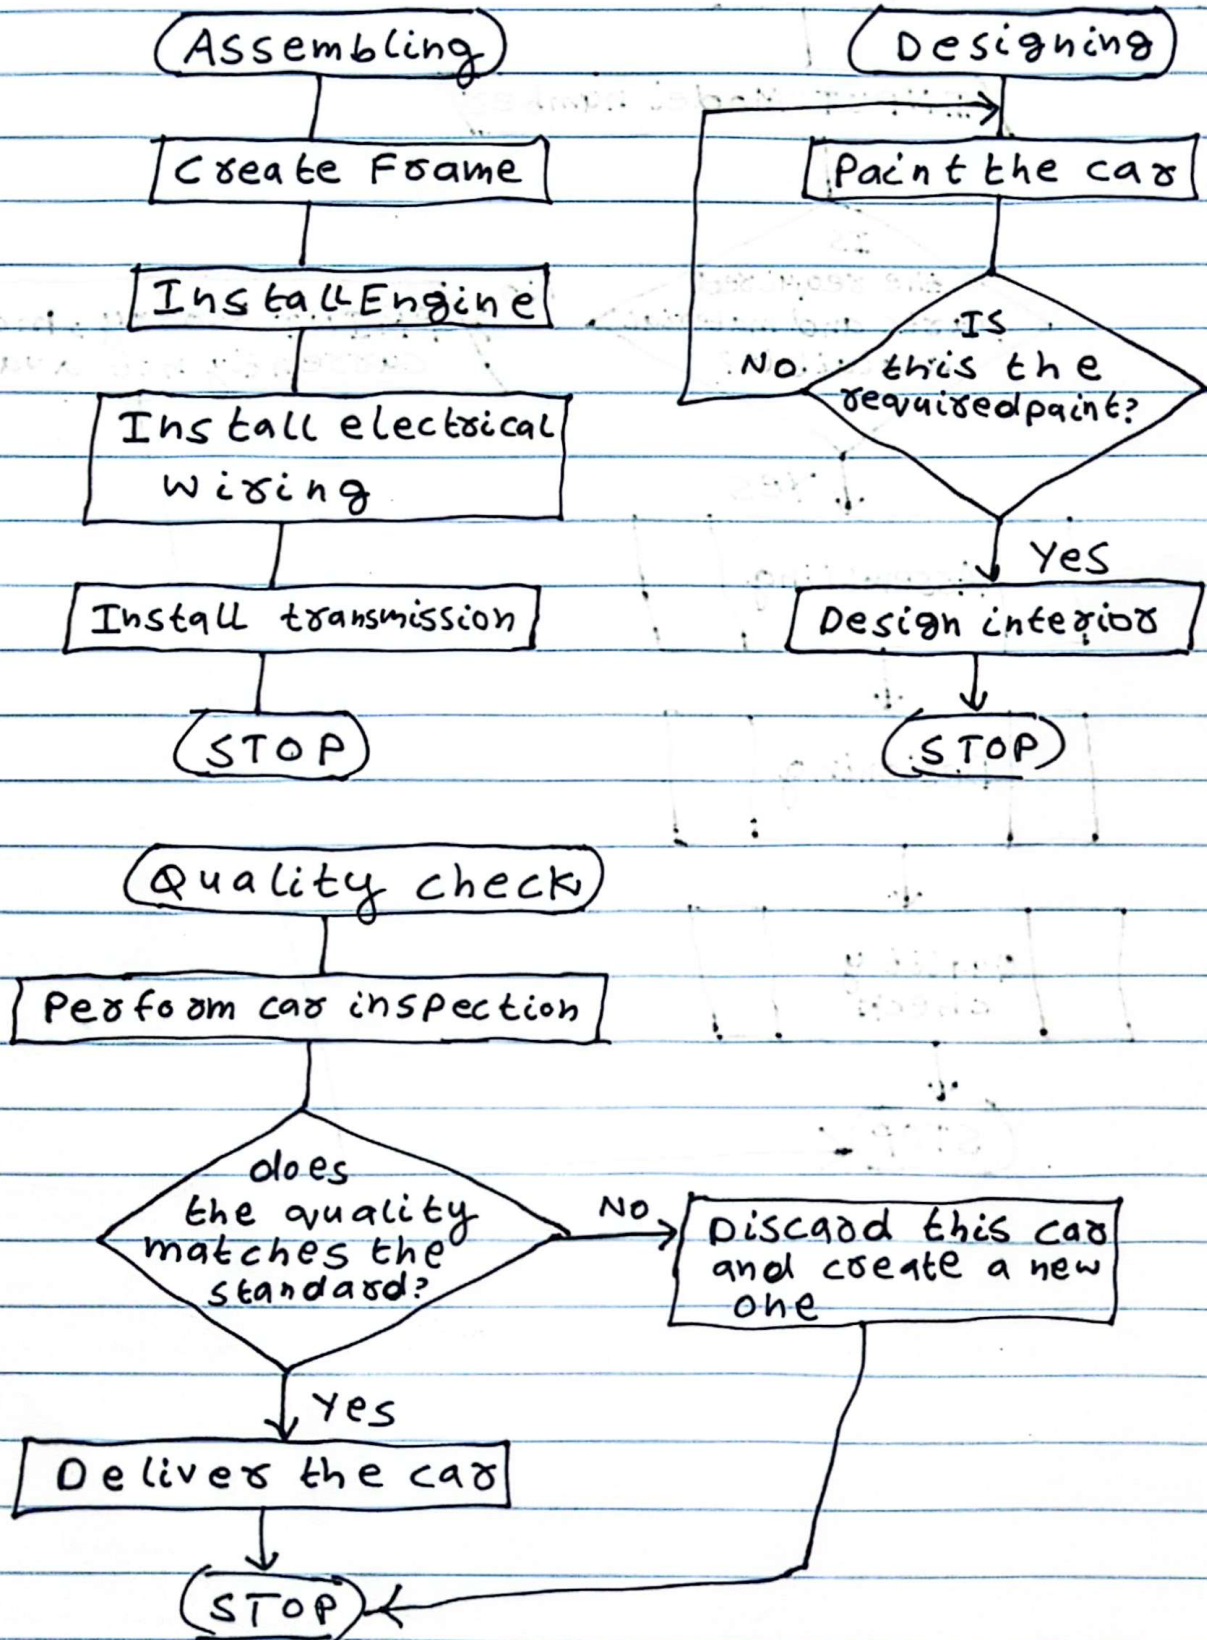 Assembling
Create Frame
Install Engine
Install electrical
wiring
Install transmission
STOP
Designing
Paint the car
Is
this the
required paint?
No
Yes
Design interior
STOP
Quality check
Perform car inspection
does
the quality
matches the
standard?
NO
Discard this car
and create a new
one
Yes
Deliver the car
STOP